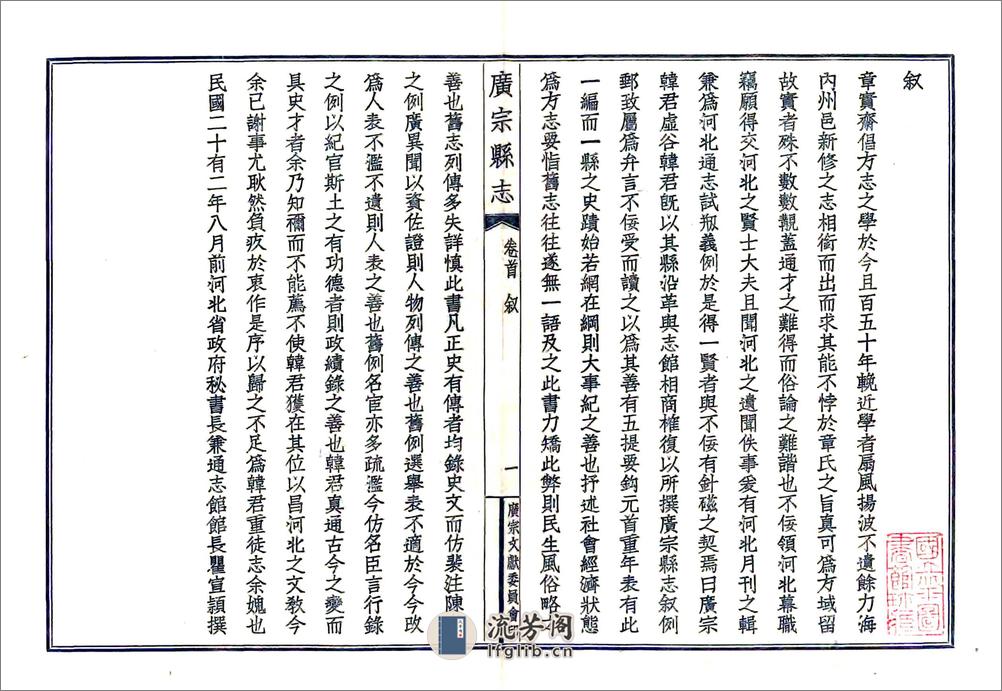 叙
章實齋倡方志之學於今且百五十年輓近學者扇風揚波不遺餘力海
內州邑新修之志相銜而出而求其能不悖於章氏之旨真可為方域留
故實者殊不數數觏蓋通才之難得而俗論之難諧也不佞領河北幕職
竊願得交河北之賢士大夫且聞河北之遺聞佚事爰有河北月刊之輯
兼為河北通志試瓶義例於是得一賢者與不佞有針磁之契焉曰廣宗
韓君虛谷韓君旣以其縣沿革與志館相商榷復以所撰廣宗縣志叙例
郵致屬為弁言不佞受而讀之以為其善有五提要鈎元首重年表有此
一編而一縣之史蹟始若網在綱則大事紀之善也抒述社會經濟狀態
為方志要恉舊志往往遂無一語及之此書力矯此弊則民生風俗略之
廣宗縣志
卷首 叙
一
廣宗文獻委員會
善也舊志列傳多失詳慎此書凡正史有傳者均錄史文而仿裴注陳志
之例廣異聞以資佐證則人物列傳之善也舊例選舉表不適於今今改
為人表不濫不遺則人表之善也舊例名宦亦多疏濫今仿名臣言行錄
之例以紀官斯土之有功德者則政績錄之善也韓君真通古今之變而
具史才者余乃知禰而不能薦不使韓君獲在其位以昌河北之文教今
余已謝事尤耿然負疚於衷作是序以歸之不足為韓君重徒志余媿也
民國二十有二年八月前河北省政府秘書長兼通志館館長瞿宣穎撰
流芳阁
lfglib.cn